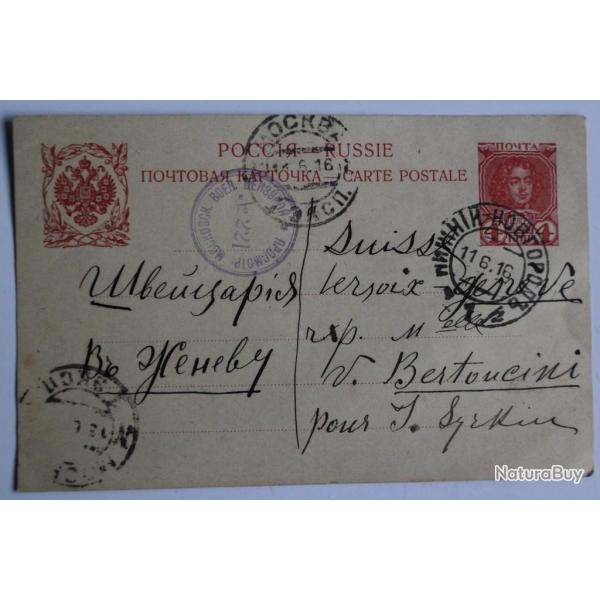 МОСКВА
РОССІЯ. RUSSIE
13.6.16
ПОЧТОВАЯ КАРТОЧКА – CARTE POSTALE
ЭКСП.
ПОЧТА
4 4
НИЖНІЙ-НОВГОРОДЪ
11.6.16
ПРОСМОТР. МОСКОВСК. ВОЕН. ЦЕНЗУРОЙ
Suisse
Швейцарія
Versoix Genève
chp. M elle
Въ Женеву
V. Bertoncini
pour J. Syrkin
NaturaBuy